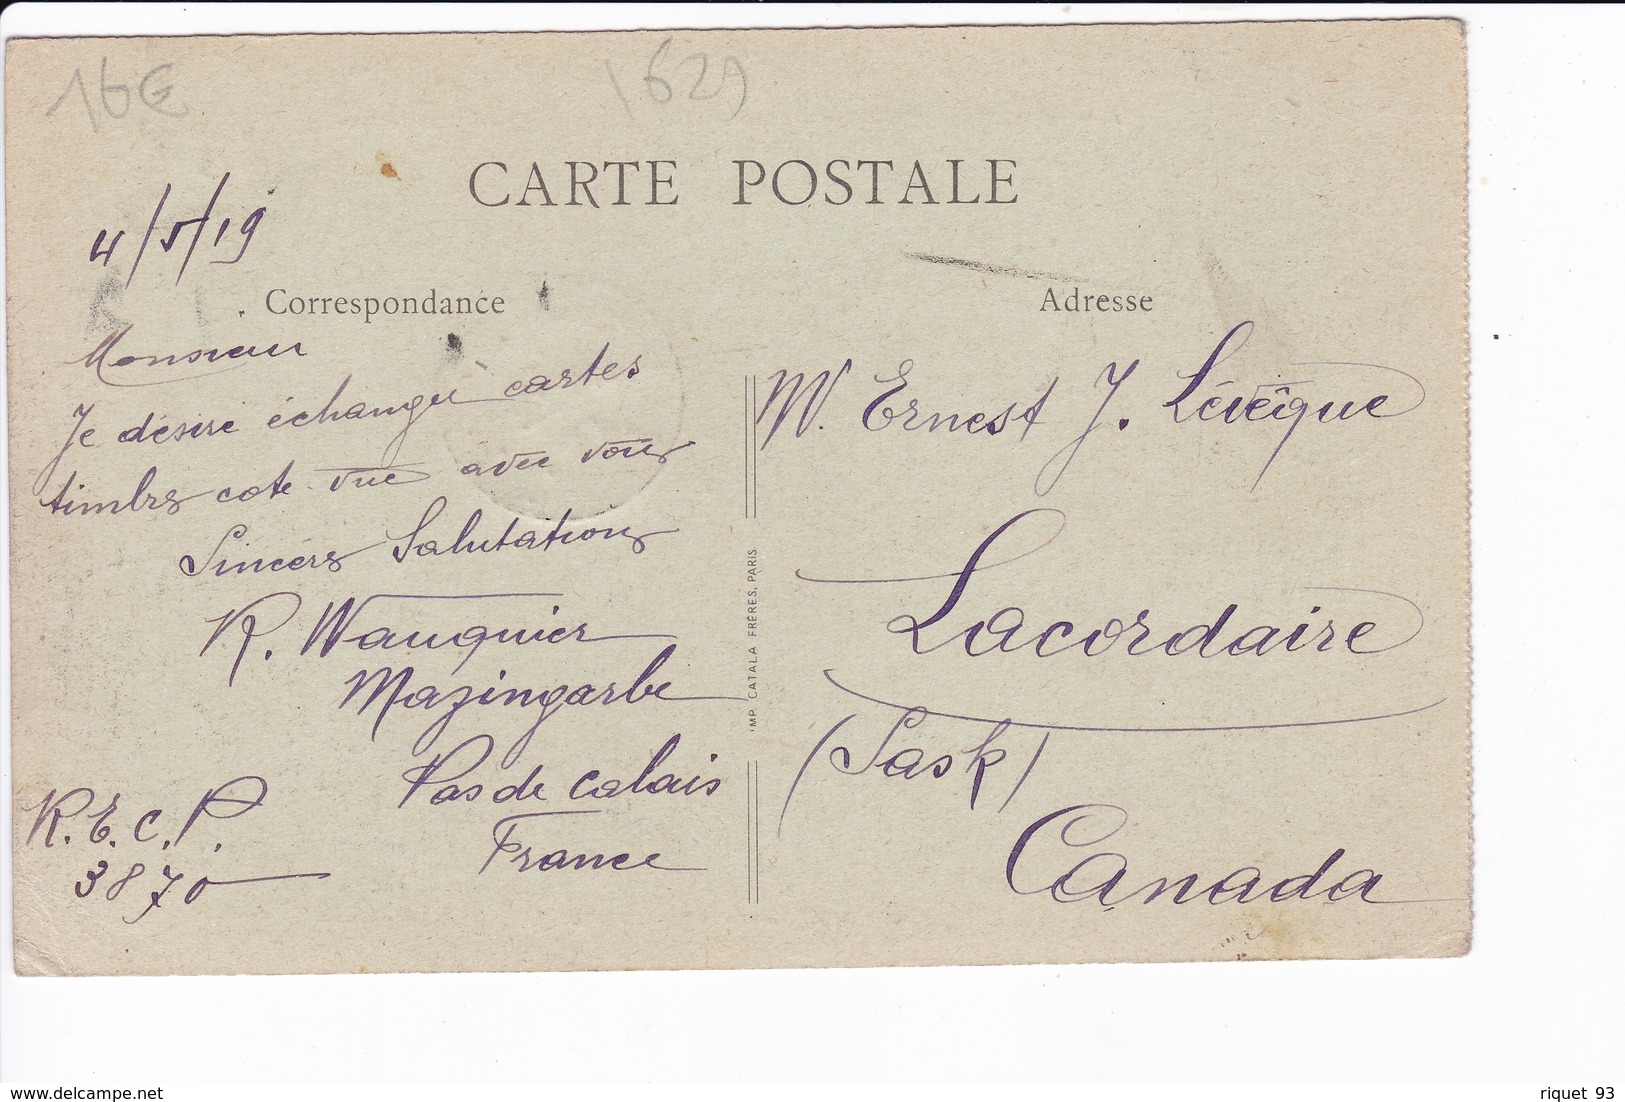 16€
1629
CARTE POSTALE
4/5/19
Correspondance
Monsieur
Je désire échanger cartes
timbrs cote vue avec vous
Sincèrs Salutations
R. Wauquier
Mazingarbe
Pas de Calais
France
R.E.C.P.
3870
IMP. CATALA FRÈRES, PARIS
Adresse
M. Ernest J. Lévêque
Lacordaire
(Sask)
Canada
www.delcampe.net
riquet 93